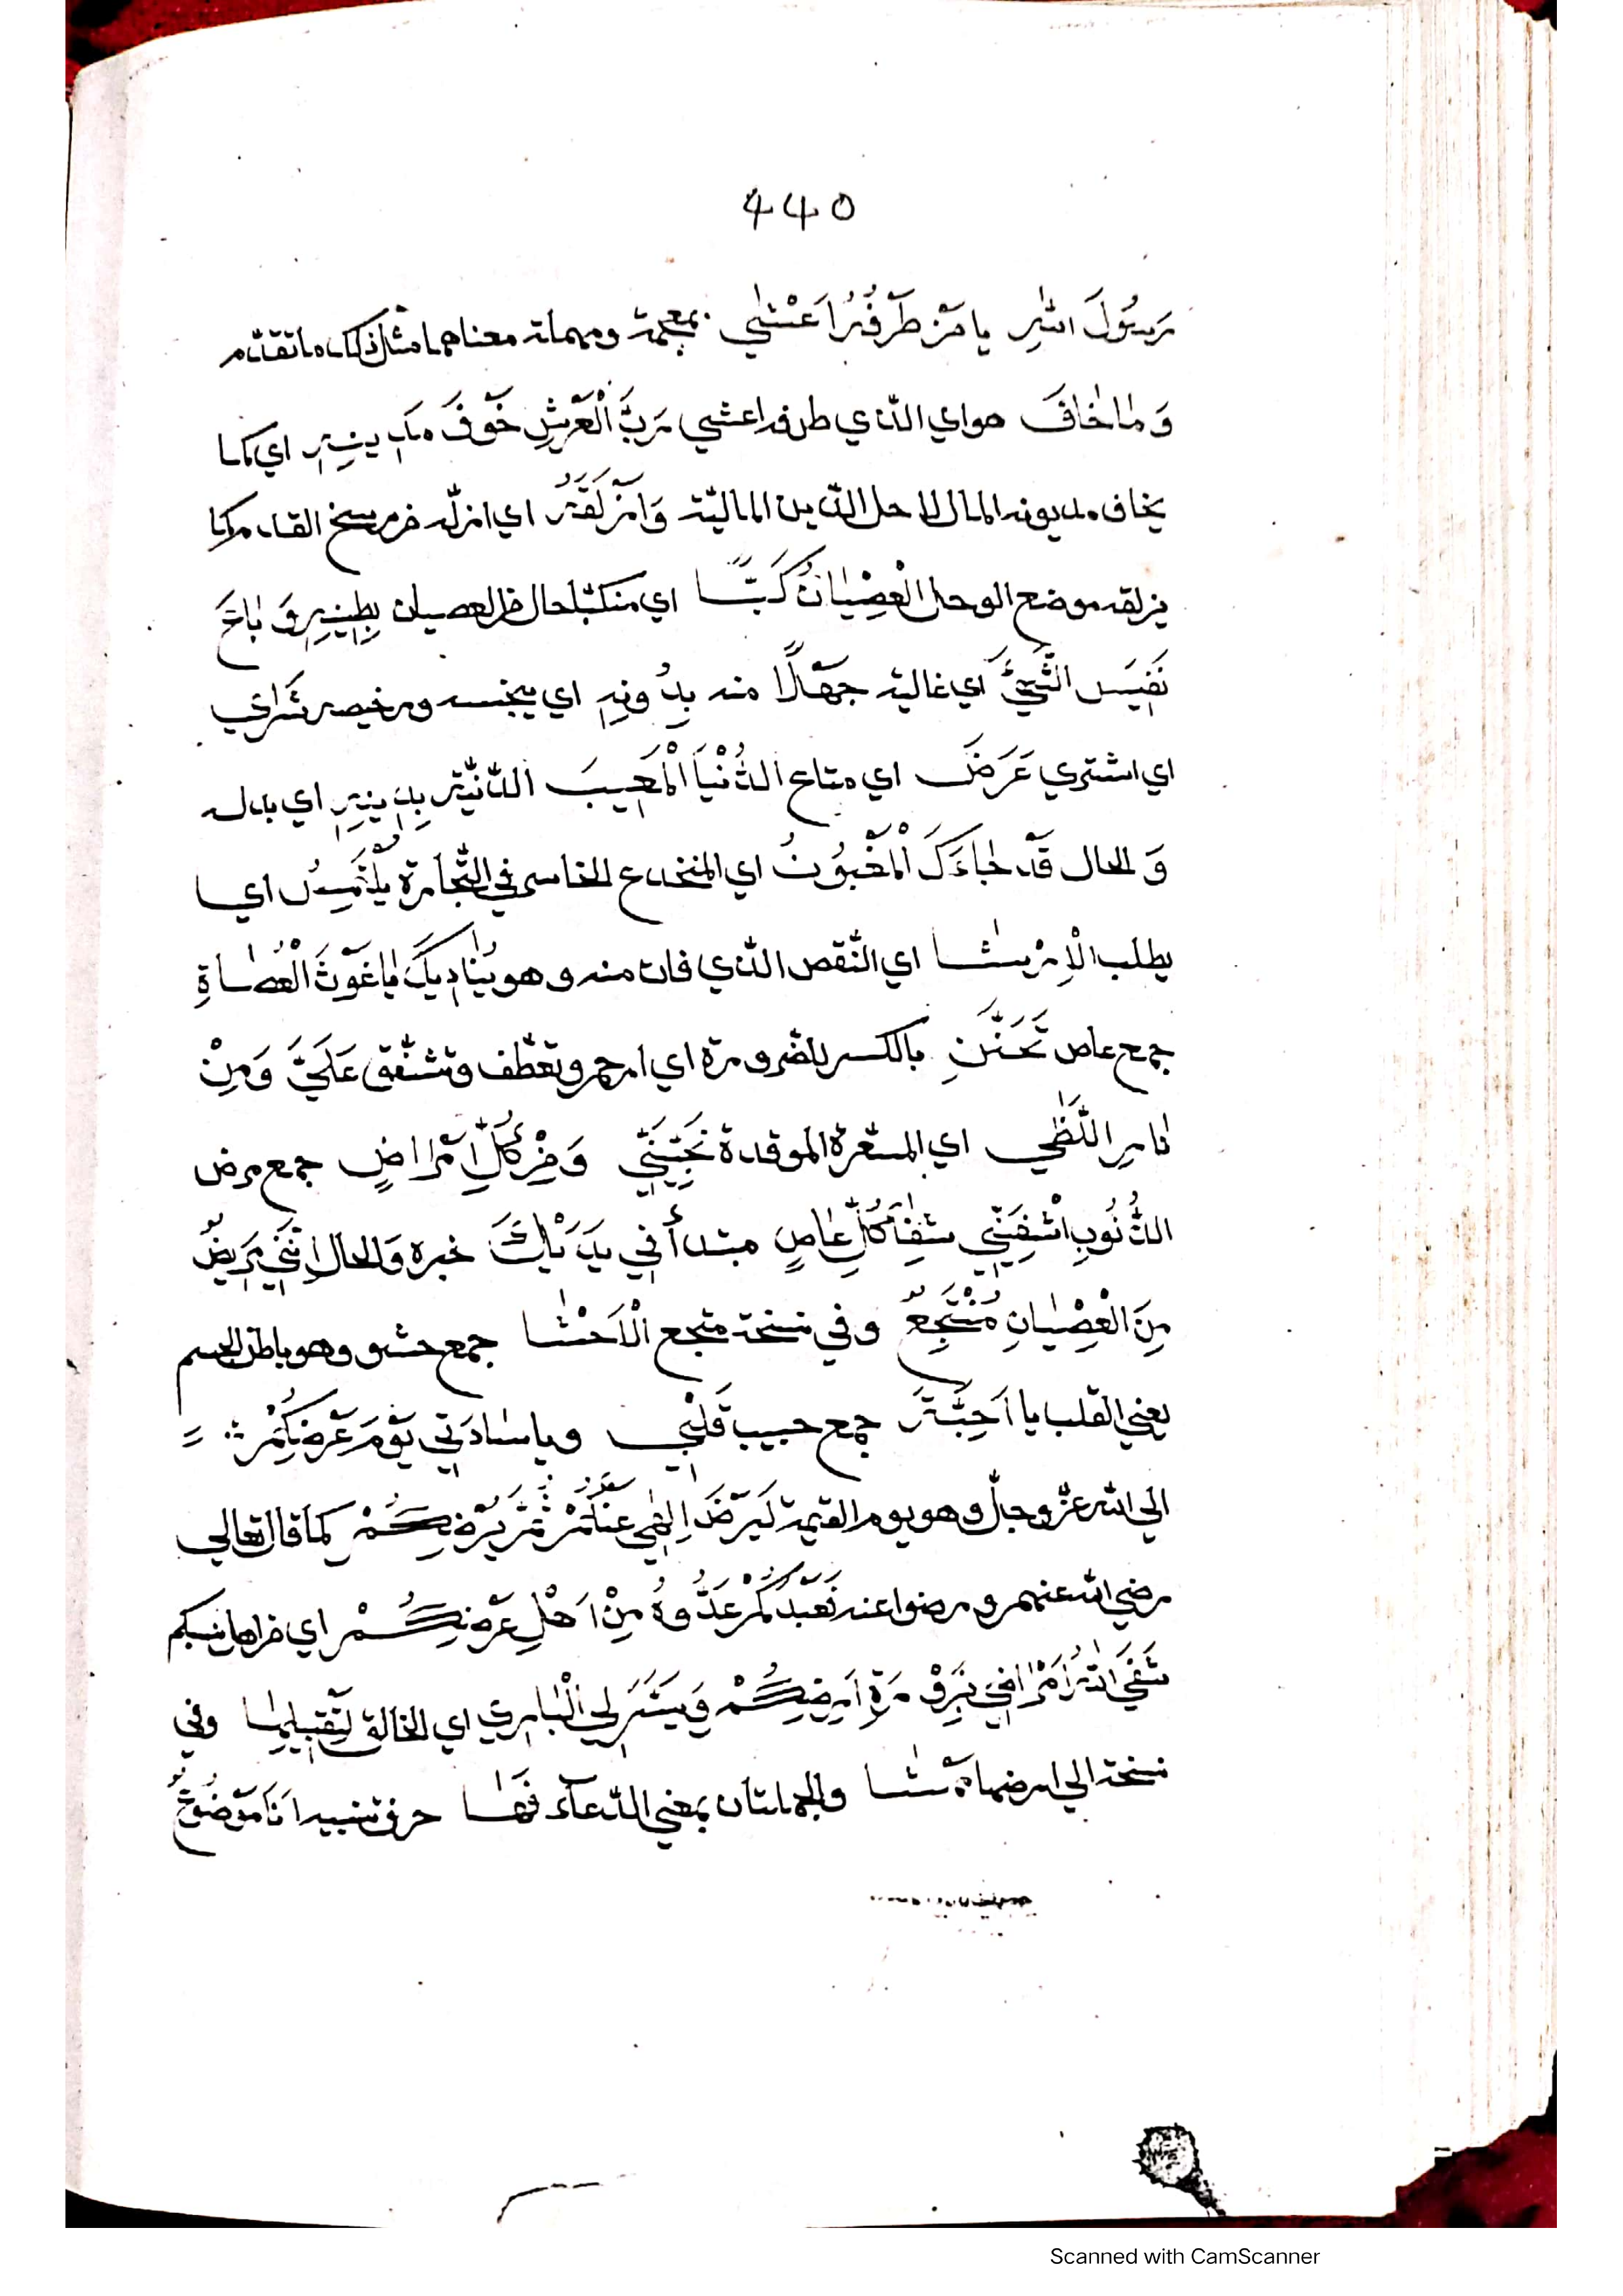 440
رَسُولَ اللهِ يا مَنْ طَرْفُهُ اَعْشٰي بمعجمة ومهملة معناهما مثل ذلك ما تقدّم
وَمٰا خٰافَ هو اي الذي طرفه اعشي رَبَّ الْعَرْشِ خَوْفَ مَدِينِهِ اي كما
يخاف مديونه المال لاجل الدين المالية وَاَزْلَقَهُ اي ازلّه فرسخ القدم كما
يزلقه موضع الوحل الْعِصْيٰانُ كَبًّا اي منكبّا حال من العصيان بِطِينِهِ وَبٰاعَ
نَفِيسَ الشَّيْئِ اي غالية جَهْلًا منه بِدُونِهِ اي بخسه ورخيصه شَرٰي
اي اشتري عَرَضَ اي متاع الدُّنْيَا الْمَعِيبَ الدّنيّة بِدِينِهِ اي بدله
وَالحال قَدْ جٰاءَكَ الْمَغْبُونُ اي المنخدع الخاسر في التّجارة يَلْتَمِسُ اي
يطلب الْاِرْشٰا اي النّقص الذي فات منه وهو يُنٰادِيكَ يٰا غَوْثَ الْعُصٰاةِ
جمع عاص تَحَنَّنِ بالكسر للضرورة اي ارحم وتعطّف وتشفّق عَلَيَّ وَمِنْ
نٰارِ اللَّظٰي اي المسعّرة الموقدة نَجِّيَنِّي وَمِنْ كُلِّ اَمْرٰاضِ جمع مرض
الذُّنُوبِ اشْفِيَنِّي شِفٰا كُلِّ عٰاصٍ مبتدأ في يَدَيْكَ خبره وَالحال اِنَّنِي مَرِيضٌ
مِنَ الْعِصْيٰانِ مُنْتَجِعٌ وفي نسخة متجع الْاَحْشٰا جمع حشو وهو باطن الجسم
يعني القلب يا اَحِبَّةَ جمع حبيب قَلْبِي ويا سٰادَتِي يَوْمَ عَرْضِكُمْ
الي الله عزّ وجلّ وهو يوم القيمة لَيَرْضَ اِلٰهِي عَنْكُمْ ثُمَّ يُرْضِكُمْ كما قال تعالي
رضي الله عنهم ورضوا عنه تَعَبَّدَكُمْ عَدُّوهُ مِنْ اَهْلِ عَرْضِكُمْ اي
شَفَي اللهُ اَمْرٰاضِي بِزَوْرَةِ اَرْضِكُمْ وَيَسَّرَ لِي الْبٰارِي اي الخالق لِتَقْبِيلِهٰا وفي
نسخة الي ارضها مَمْشٰا والجملتان بمعني الدّعآء فَهٰا حرف تنبيه اَنَا مَوْضُوعٌ
Scanned with CamScanner